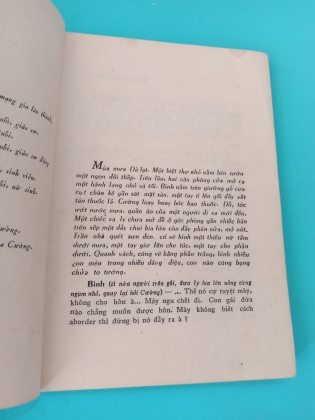 mạng gia líu thanh,
uổi, giáo sư.
uổi.
uổi, giáo sư động
uổi, sinh viên.
uổi, nữ sinh.
Cường.
a Cường.
Mùa mưa Đà lạt. Một biệt thự nhỏ nằm bên sườn
một ngọn đồi thấp. Trên lầu, hai căn phòng cửa mở ra
một hành lang nhỏ và tối. Bình nằm trên giường gỗ cưa
cụt chân kê gần sát mặt sàn, một tay tì lên gối đầy vắt
tàn thuốc lá. Cường loay hoay bóc bao thuốc. Đồ, tóc
ướt nước mưa, quần áo của người đi xa mới đến.
Một chiếc va ly mở để ở góc phòng gần chiếc bàn
trên xếp mấy chai bia lớn còn đầy phân nửa, mở nút.
Trần nhà quét sơn đen, có vẽ hình một thiếu nữ tắm
dưới mưa, một tay giơ lên che tóc, một tay che phần
dưới. Quanh vách, cũng vẽ bằng phấn trắng, hình nhiều
con mèo trong nhiều dáng điệu, con nào cũng bụng
chửa to tướng.
Bình (ở nửa người trên gối, đưa ly bia lên uống từng
ngụm nhỏ, quay lại hỏi Cường) — ... Thế nó cự tuyệt mày,
không cho hôn à... Mày ngu chết đi. Con gái đứa
nào chẳng muốn được hôn. Mày không biết cách
aborder thì đừng bị nó đẩy ra à ?